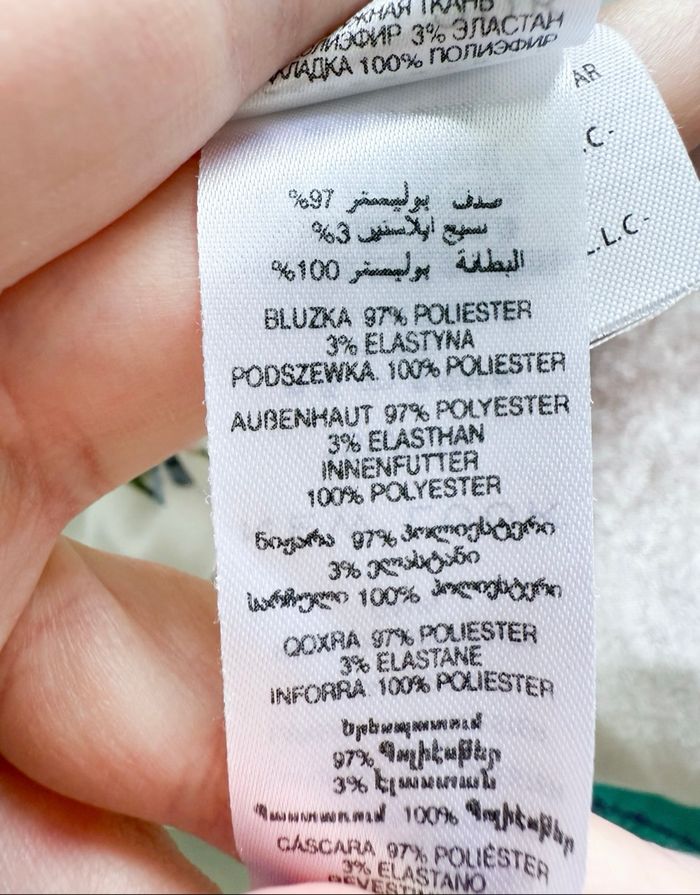 ТКАНЬ
3% ЭЛАСТАН
100% ПОЛИЭФИР
AR
.C-
L.L.C-
صدف بوليستر 97%
نسيج ايلاستين 3%
البطانة بوليستر 100%
BLUZKA 97% POLIESTER
3% ELASTYNA
PODSZEWKA. 100% POLIESTER
AUßENHAUT 97% POLYESTER
3% ELASTHAN
INNENFUTTER
100% POLYESTER
ნიჟარა 97% პოლიესტერი
3% ელასტანი
სარჩული 100% პოლიესტერი
QOXRA 97% POLIESTER
3% ELASTANE
INFORRA 100% POLIESTER
Երեսպատում
97% Պոլիէսթեր
3% Էլաստան
Պաստառում 100% Պոլիէսթեր
CÁSCARA 97% POLIÉSTER
3% ELASTANO